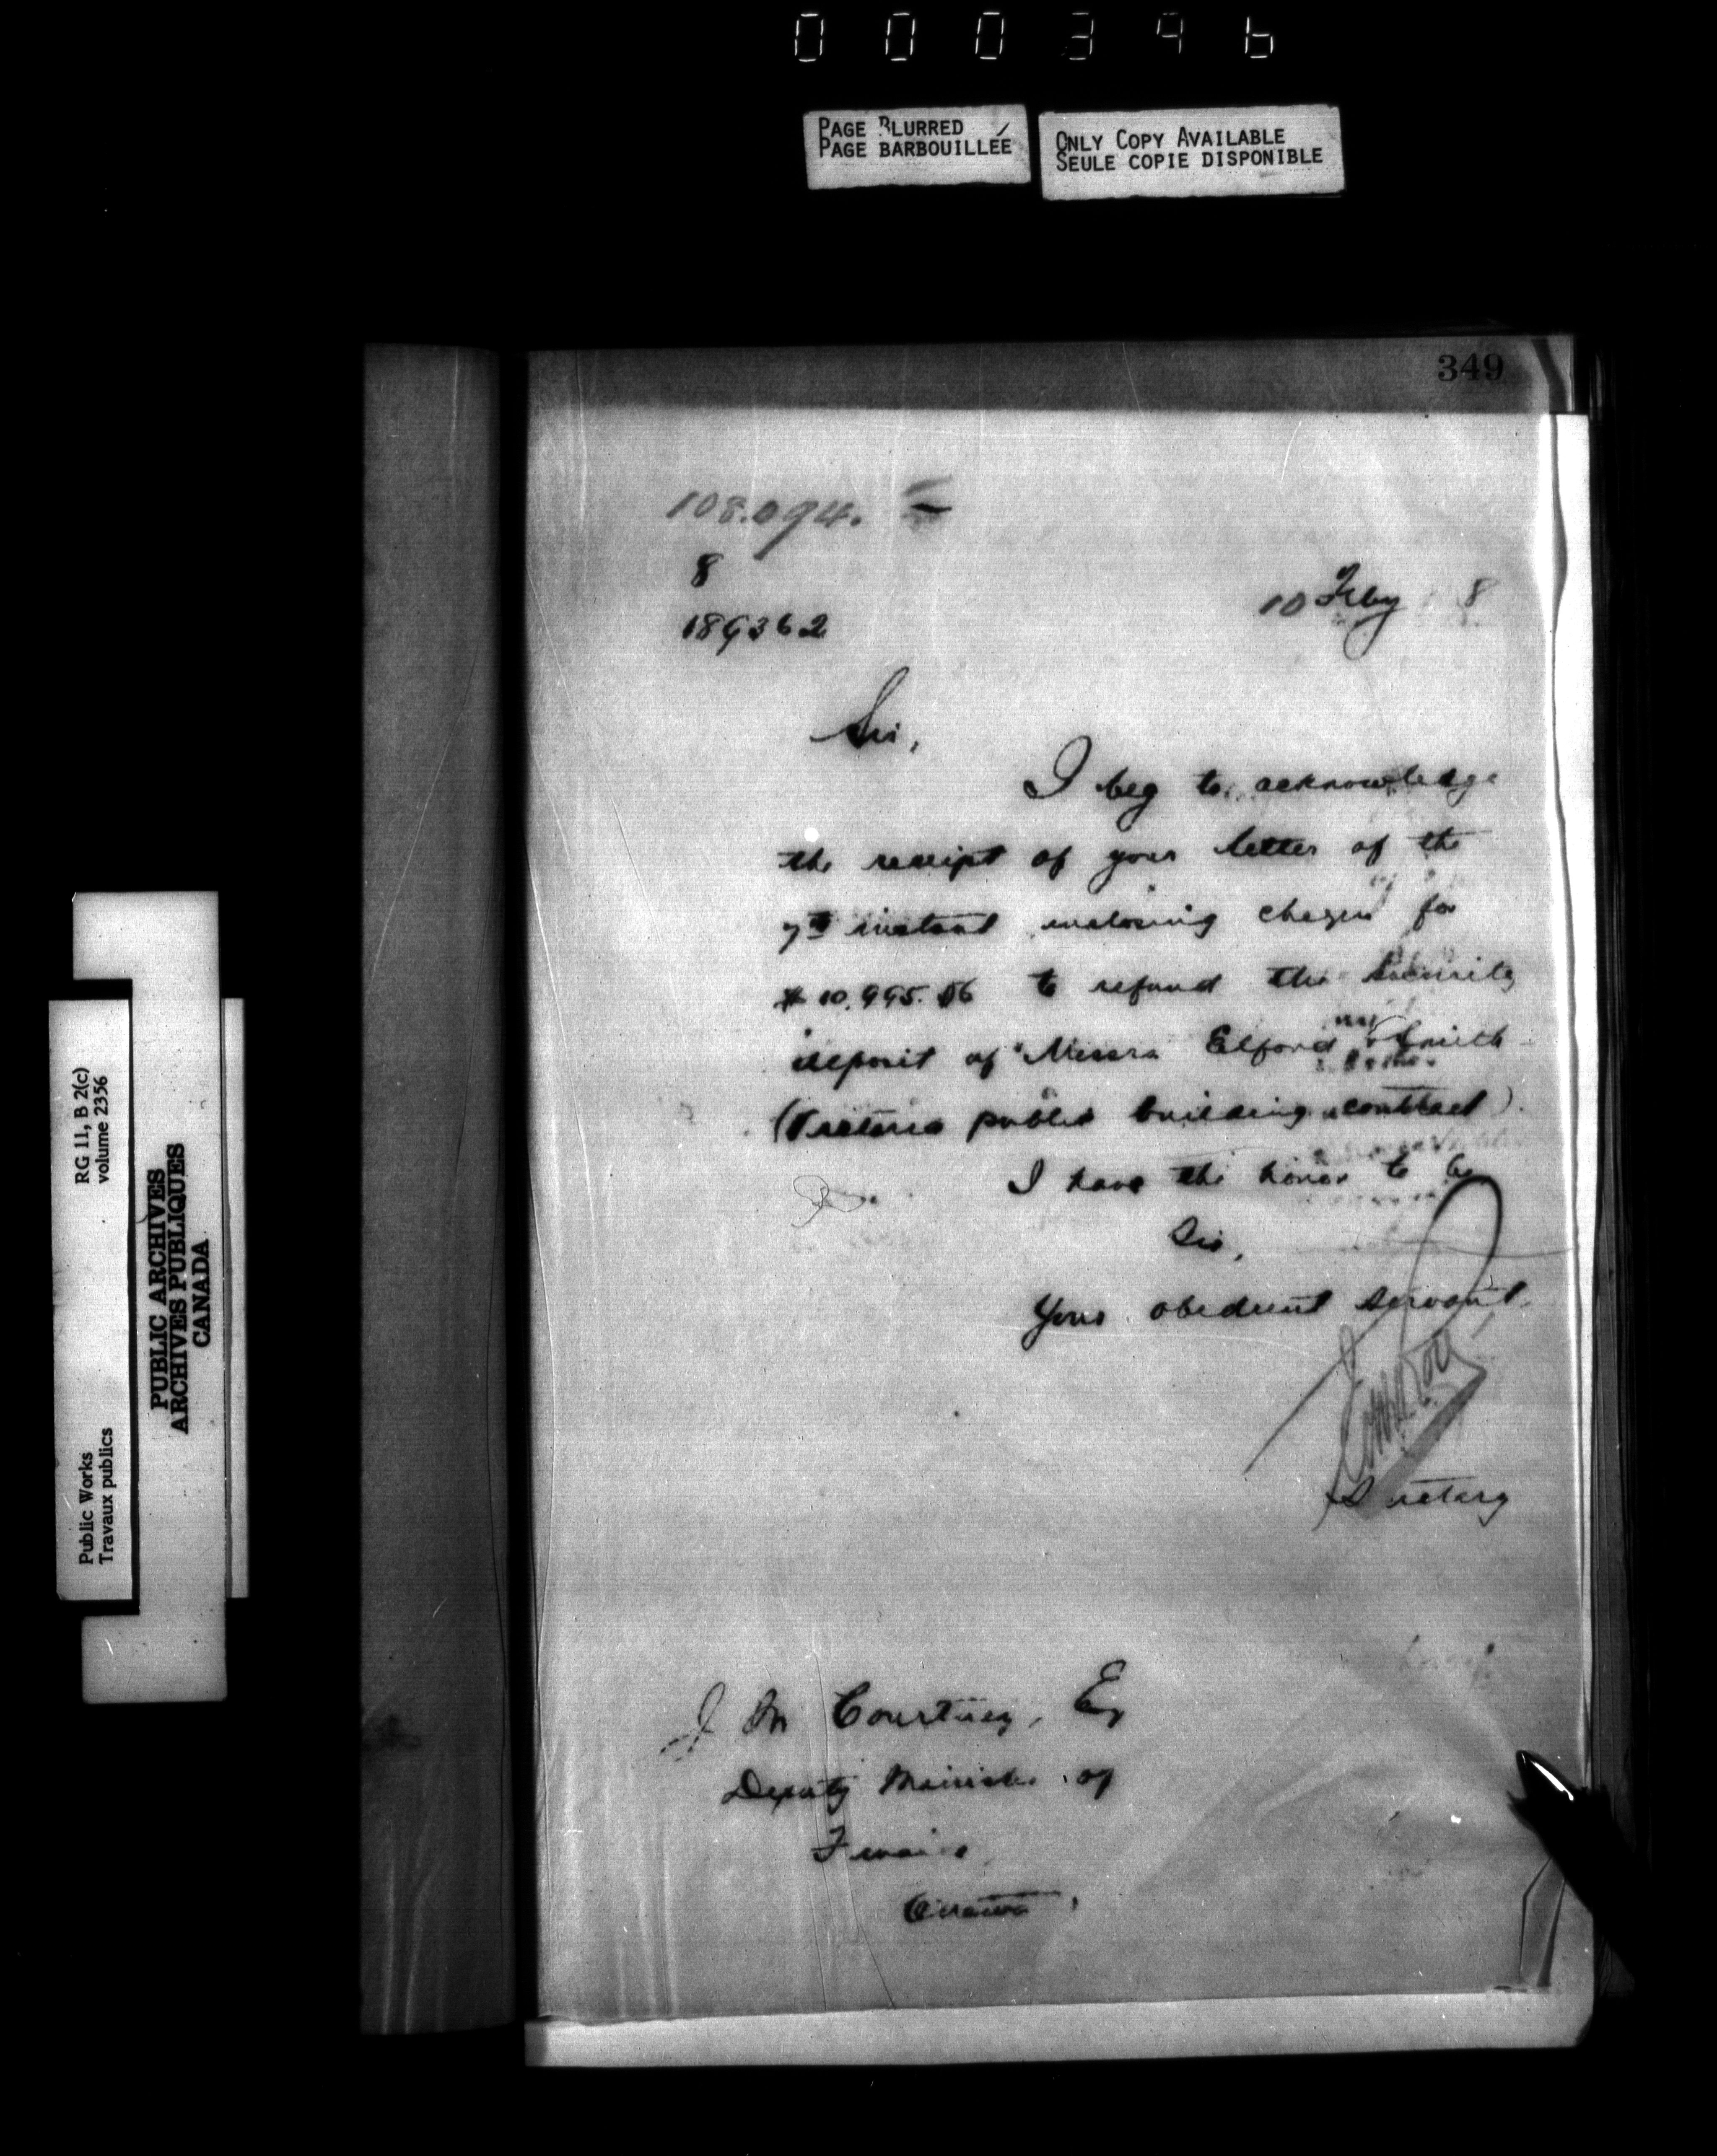 000396
PAGE BLURRED
PAGE BARBOUILLÉE
ONLY COPY AVAILABLE
SEULE COPIE DISPONIBLE
349
108.094.
8
189362
10 Feby 8
Sir,
I beg to acknowledge
the receipt of your letter of the
7th instant enclosing cheque for
$10,995.56 to refund the security
deposit of Messrs Elford & Smith
(Victoria public building contract).
I have the honor to be
Sir,
Your obedient servant,
Secretary
J M Courtney, Esq
Deputy Minister of
Finance
Ottawa,
RG 11, B 2(c)
volume 2356
Public Works
Travaux publics
PUBLIC ARCHIVES
ARCHIVES PUBLIQUES
CANADA